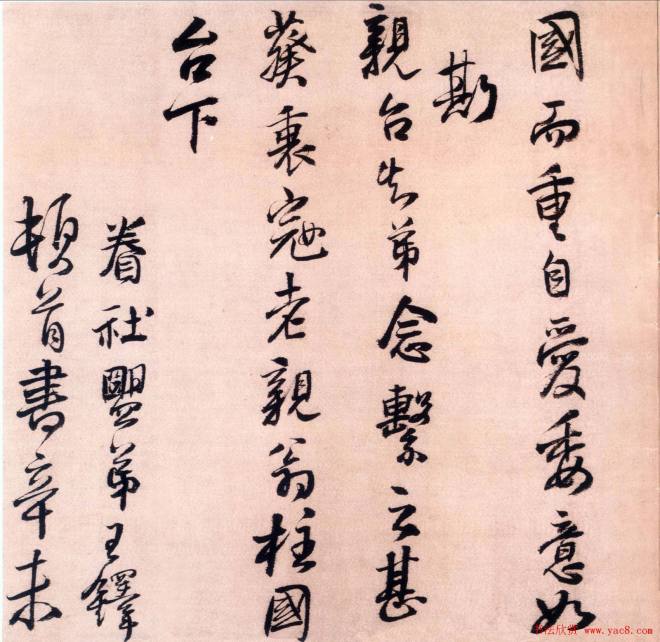 國而重自愛委意如
斯
親台知弟念繫云甚
葵衷寇老親翁柱國
台下
眷社盟弟王鐸
頓首書辛未
书法欣赏 www.yac8.com